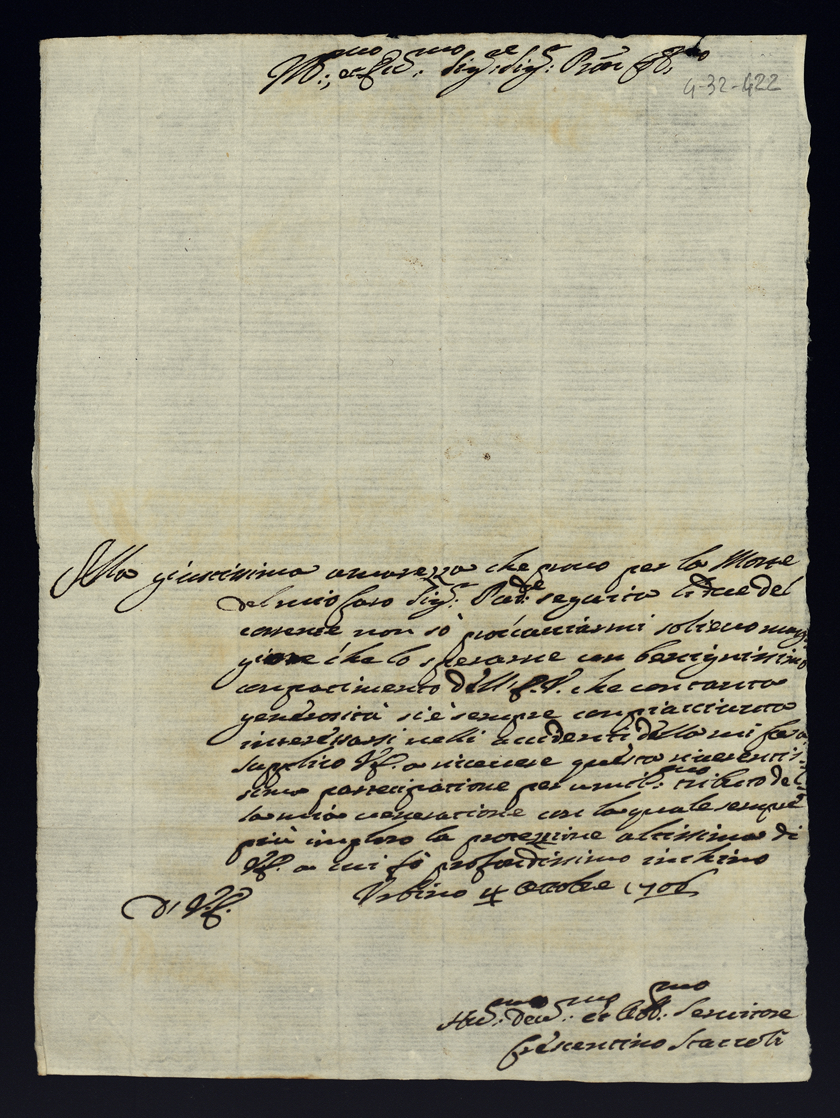 Ill:mo et Ecc:mo Sig:re Sig:r Pron Col:mo
4-32-422
Alla giustissima amarezza che provo per la Morte
del mio Caro Sig:r Padre seguita li due del
corrente non sò procacciarmi solievo mag
giore che lo sperarne un benignissimo
compatimento dell'E.V. che con tanta
generosità si è sempre compiacciuta
interessarsi nelli accidenti della mi Casa
supplico V.E. a ricevere questa riverentis-
sima partecipatione per umil:mo tributo del-
la mia veneratione con la quale sempre
più imploro la protezzione altissima di
V.E. a cui fò profondissimo inchino
Di V.E. Urbino 4 Ottobre 1706
Hu:mo Dev:mo et Obb:mo Servitore
Crescentino Staccoli